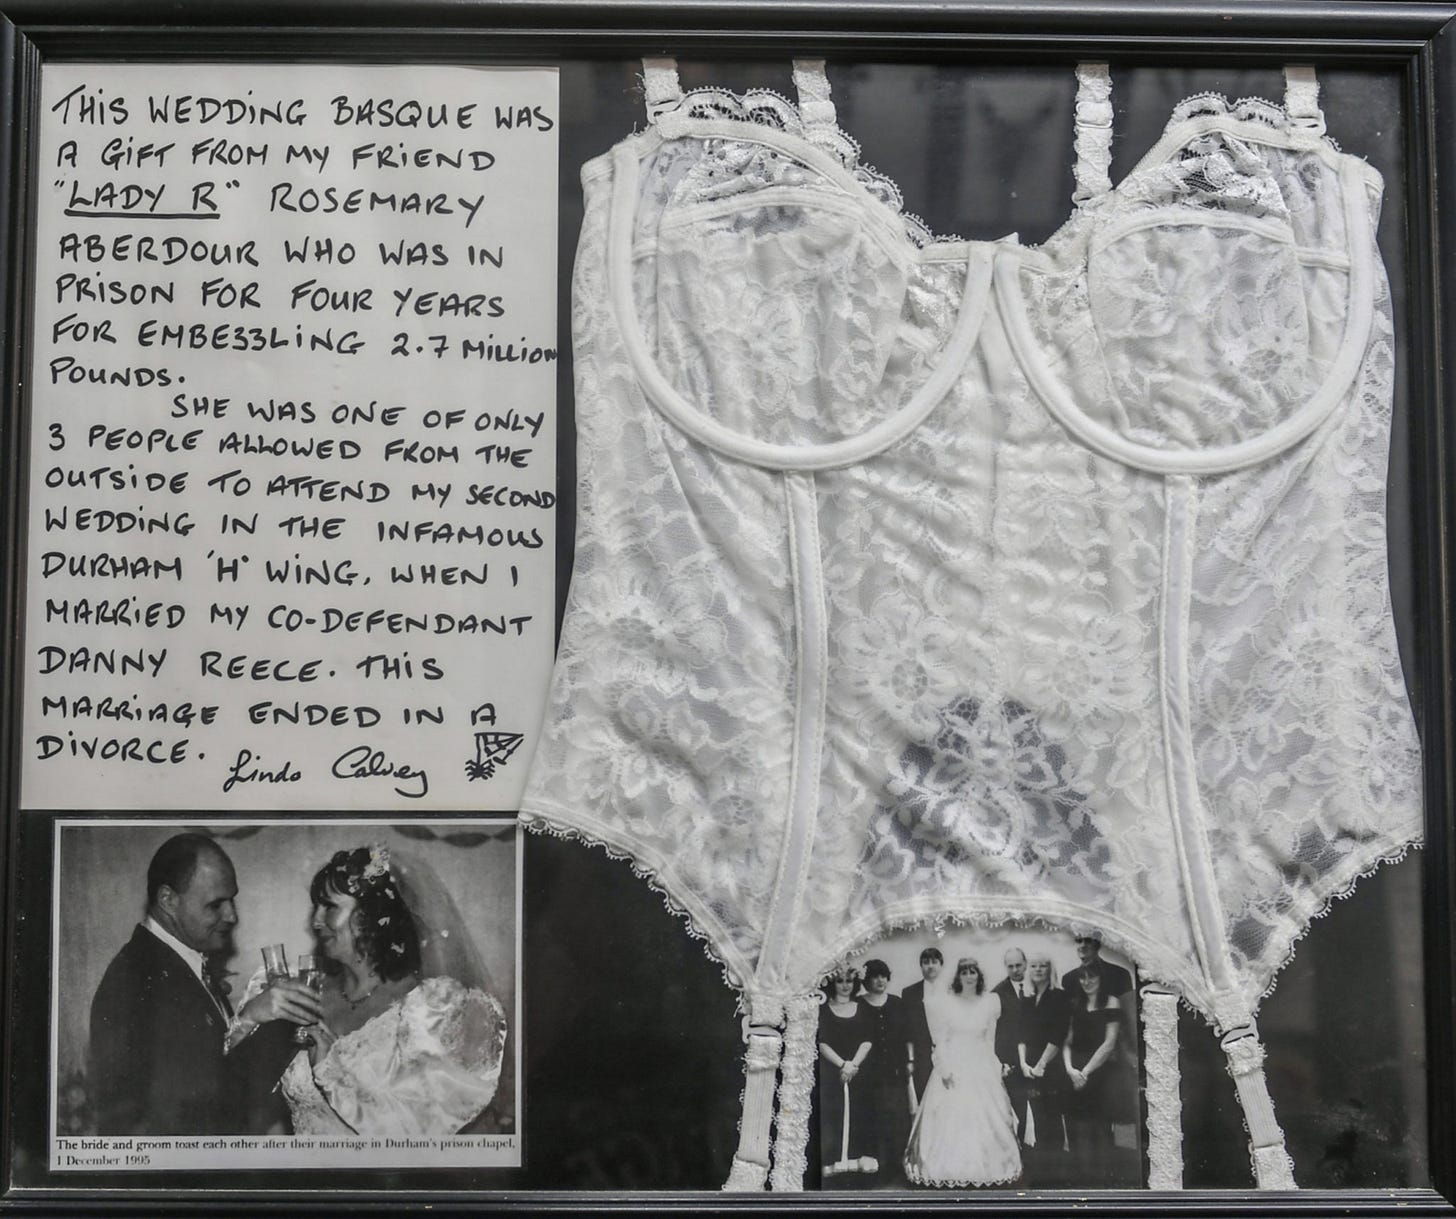 THIS WEDDING BASQUE WAS
A GIFT FROM MY FRIEND
"LADY R" ROSEMARY
ABERDOUR WHO WAS IN
PRISON FOR FOUR YEARS
FOR EMBEZZLING 2.7 MILLION
POUNDS.
SHE WAS ONE OF ONLY
3 PEOPLE ALLOWED FROM THE
OUTSIDE TO ATTEND MY SECOND
WEDDING IN THE INFAMOUS
DURHAM 'H' WING, WHEN I
MARRIED MY CO-DEFENDANT
DANNY REECE. THIS
MARRIAGE ENDED IN A
DIVORCE. Linda Calvey
The bride and groom toast each other after their marriage in Durham's prison chapel,
1 December 1995